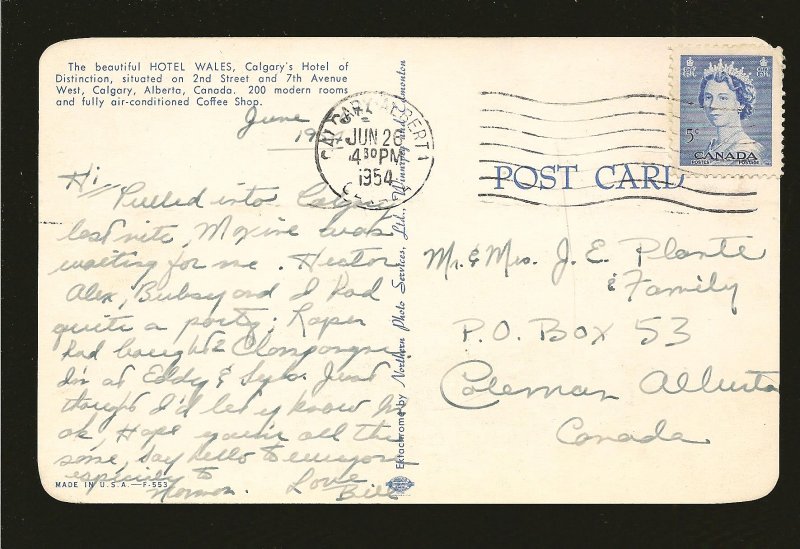 The beautiful HOTEL WALES, Calgary's Hotel of
Distinction, situated on 2nd Street and 7th Avenue
West, Calgary, Alberta, Canada. 200 modern rooms
and fully air-conditioned Coffee Shop.
June
CALGARY ALBERTA
JUN 26
4 30 PM
1954
5c
CANADA
POSTES POSTAGE
POST CARD
Hi
Pulled into
last nite, Maxine was
waiting for me. Hector
Alex, Bubsy and I had
quite a party;
had bought 2
at Eddy &
thought I'd let y know I'm
ok, Hope you're all the
same, say hello to everyone
especially to
Love
Bill
MADE IN U.S.A.—F-553
Ektachrome by Northern Photo Services, Ltd., Winnipeg and Edmonton
Mr. & Mrs. J. E. Plante
& Family
P.O. Box 53
Coleman Alberta
Canada